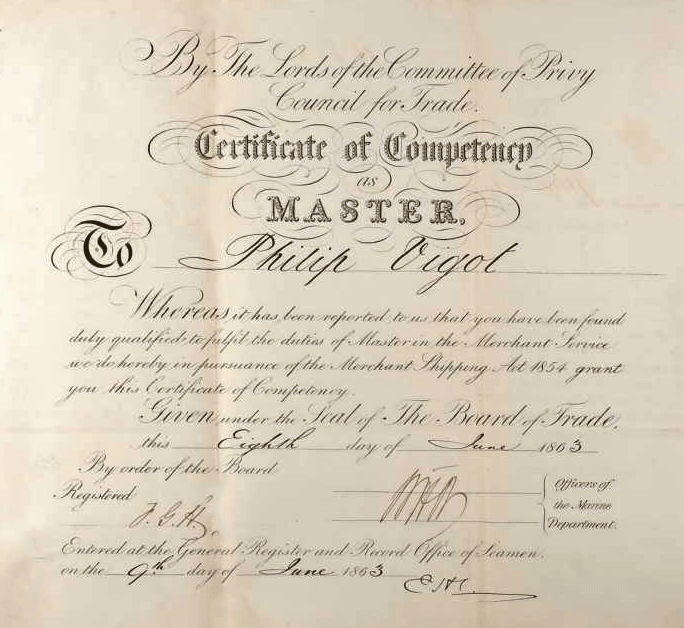 By The Lords of the Committee of Privy
Council for Trade.
Certificate of Competency
as
MASTER.
To Philip Vigot
Whereas it has been reported to us that you have been found
duly qualified to fulfil the duties of Master in the Merchant Service
we do hereby in pursuance of the Merchant Shipping Act 1854 grant
you this Certificate of Competency.
Given under the Seal of The Board of Trade,
this Eighth day of June 1863
By order of the Board
Registered
Officers of
the Marine
Department.
Entered at the General Register and Record Office of Seamen.
on the 9th day of June 1863